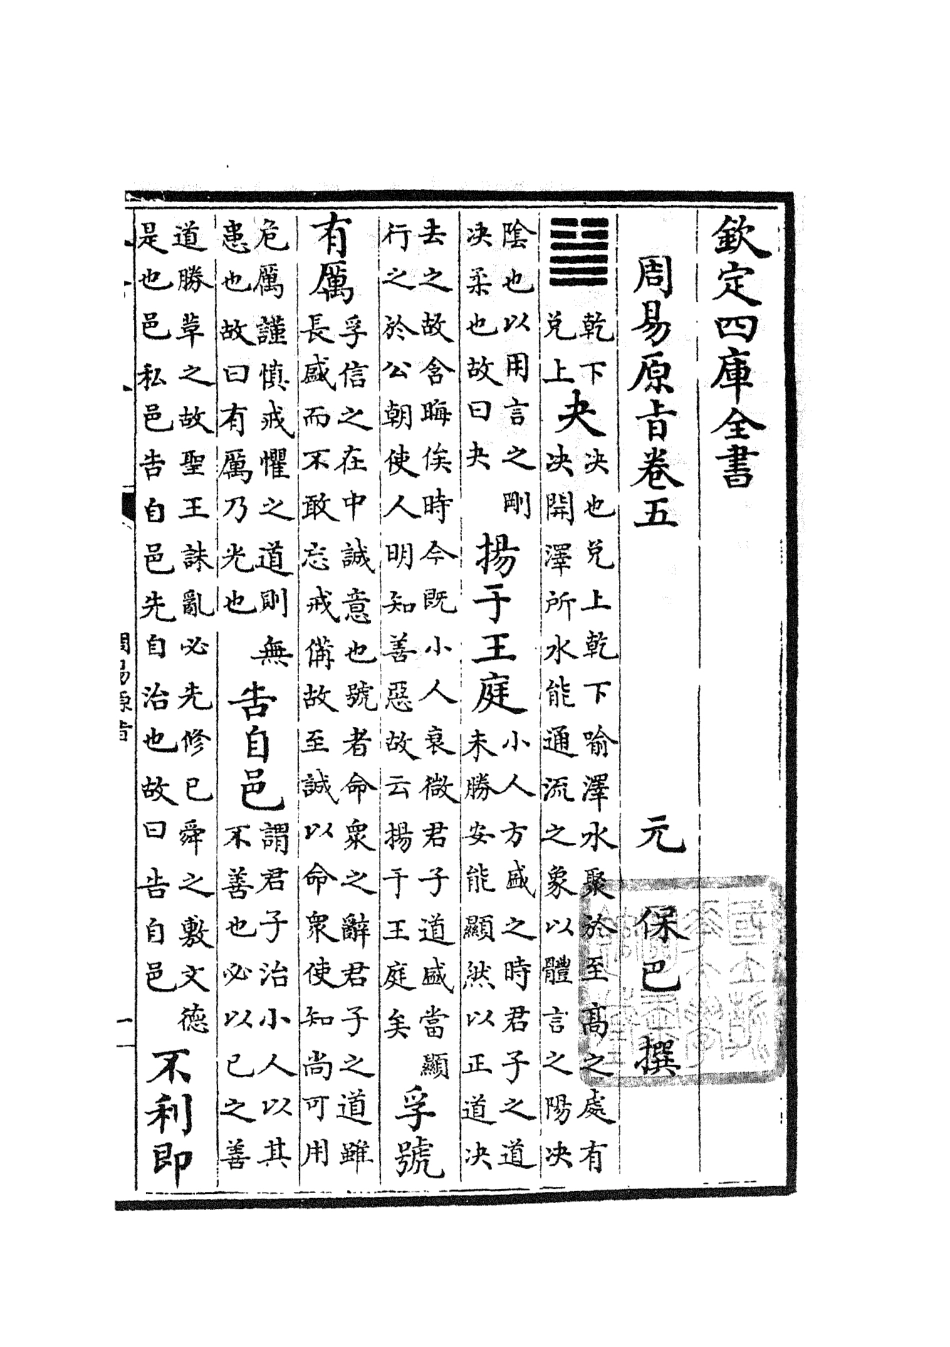 欽定四庫全書
周易原旨卷五
元 保巴 撰
䷪
乾下
兑上
夬
决也兑上乾下喻澤水聚於至髙之處有
决開澤所水能通流之象以體言之陽决
陰也以用言之剛
决柔也故曰夬
揚于王庭
小人方盛之時君子之道
未勝安能顯然以正道决
去之故含晦俟時今既小人衰微君子道盛當顯
行之於公朝使人明知善惡故云揚于王庭矣
孚號
有厲
孚信之在中誠意也號者命衆之辭君子之道雖
長盛而不敢忘戒備故至誠以命衆使知尚可用
危厲謹慎戒懼之道則無
患也故曰有厲乃光也
告自邑
謂君子治小人以其
不善也必以已之善
道勝草之故聖王誅亂必先修已舜之敷文德
是也邑私邑告自邑先自治也故曰告自邑
不利即
周易原旨
一